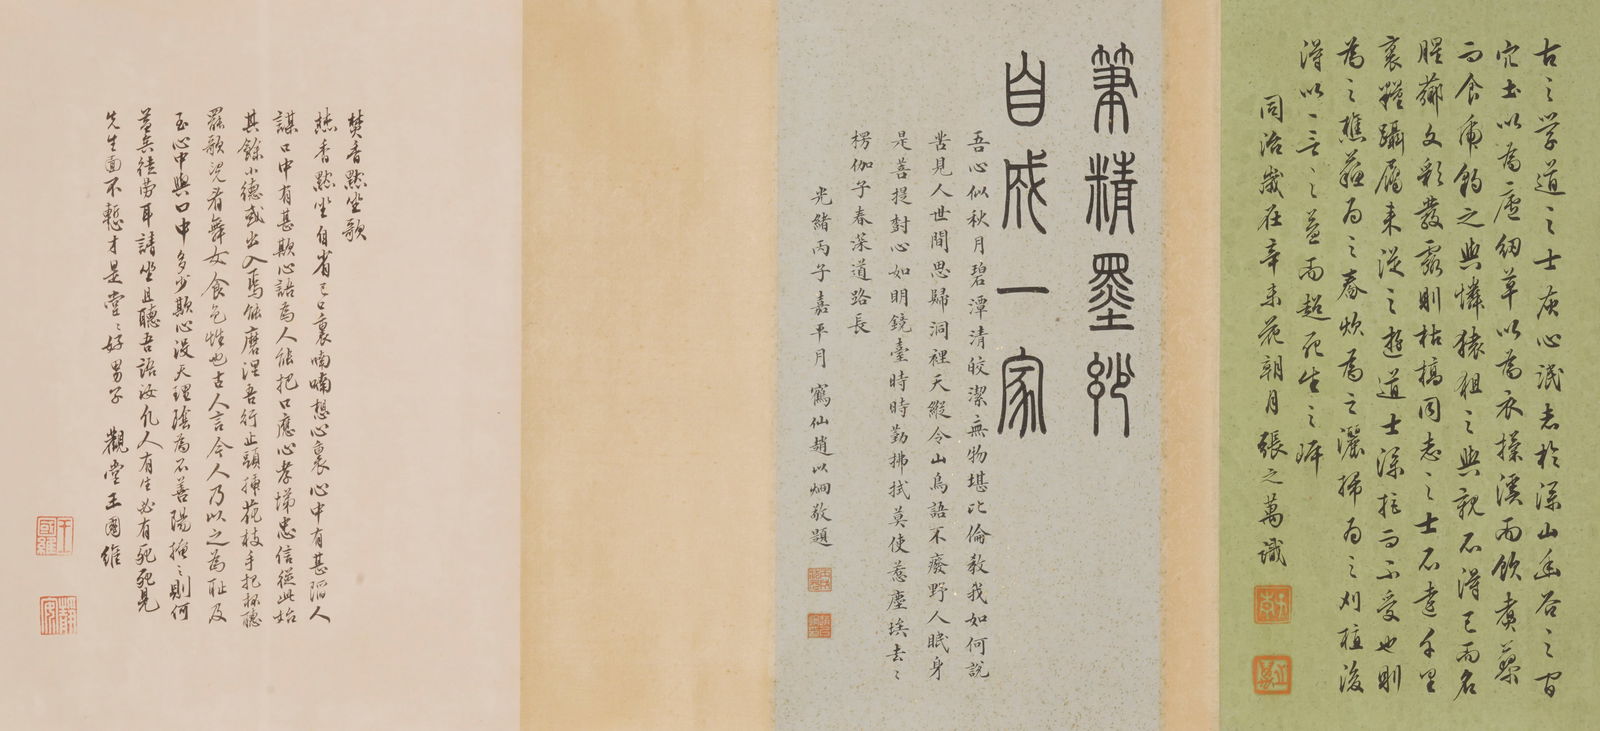 古之学道之士灰心泯志於深山幽谷之間
穴土以為廬紉草以為衣掬溪而飲煮藜
而食虎豹之與憐猿狙之與親不得已而名
腥薌文彩發露則枯槁同志之士不遠千里
裹糧躡屩来從之遊道士深拒而不受也則
為之樵蘇為之舂炊為之灑掃為之刈植後
得以一言之益而超死生之
同治歲在辛未花朝月張之萬識
筆精墨妙
自成一家
吾心似秋月碧潭清皎潔無物堪比倫教我如何說
嘗見人世間思歸洞裡天縱令山鳥語不廢野人眠身
是菩提對心如明鏡臺時時勤拂拭莫使惹塵埃去々
楞伽子春深道路長
光緒丙子嘉平月鶴仙趙以炯敬題
焚香默坐歌
焚香默坐自省己口裏喃喃想心裏心中有甚陷人
謀口中有甚欺心語為人能把口應心孝悌忠信從此始
其餘小德或出入焉能磨涅吾行止頭插花枝手把杯聽
罷歌児看舞女食色性也古人言今人乃以之為耻及
至心中與口中多少欺心没天理陰為不善陽掩之則何
益矣徒勞耳請坐且聽吾語汝凡人有生必有死死見
先生面不慙才是堂堂好男子 觀堂王國維
王國維